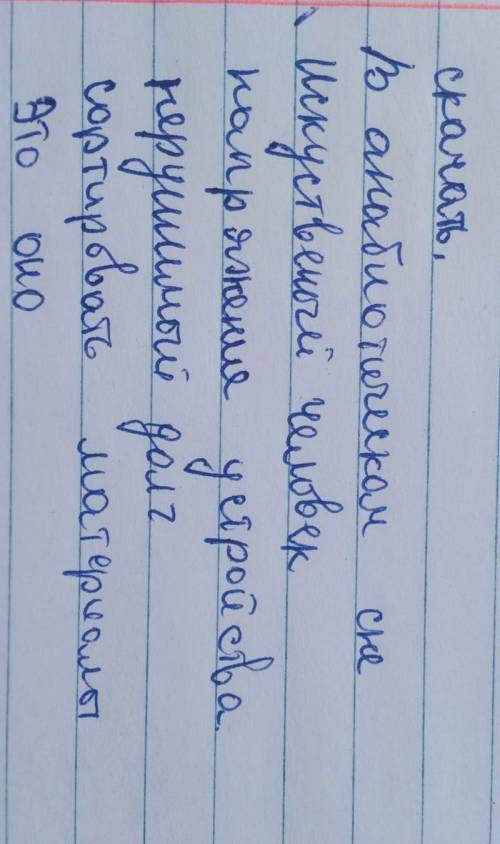 скачать,
в анабиотическом сне
Искуственый человек
напряжение устройства.
нерушимый долг
сортировать материалы
это оно